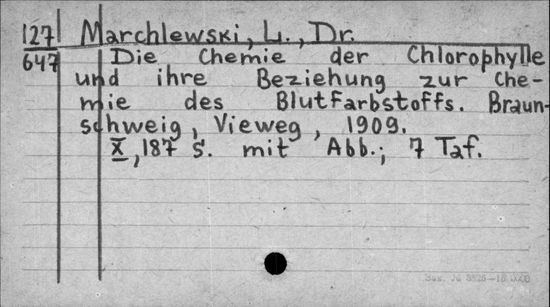 127 Marchlewski, L., Dr.
647 Die Chemie der Chlorophylle
und ihre Beziehung zur Che-
mie des Blutfarbstoffs. Braun-
schweig, Vieweg, 1909.
X, 187 S. mit Abb.; 7 Taf.